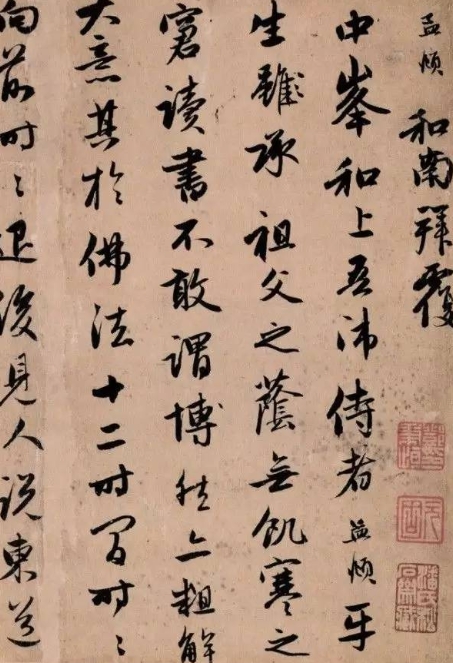 孟頫和南拜覆
中峯和上吾师侍者孟頫平
生雖承祖父之蔭無飢寒之
窘讀書不敢謂博然亦粗解
大意其於佛法十二时間时〻
向前时〻退後見人说東道